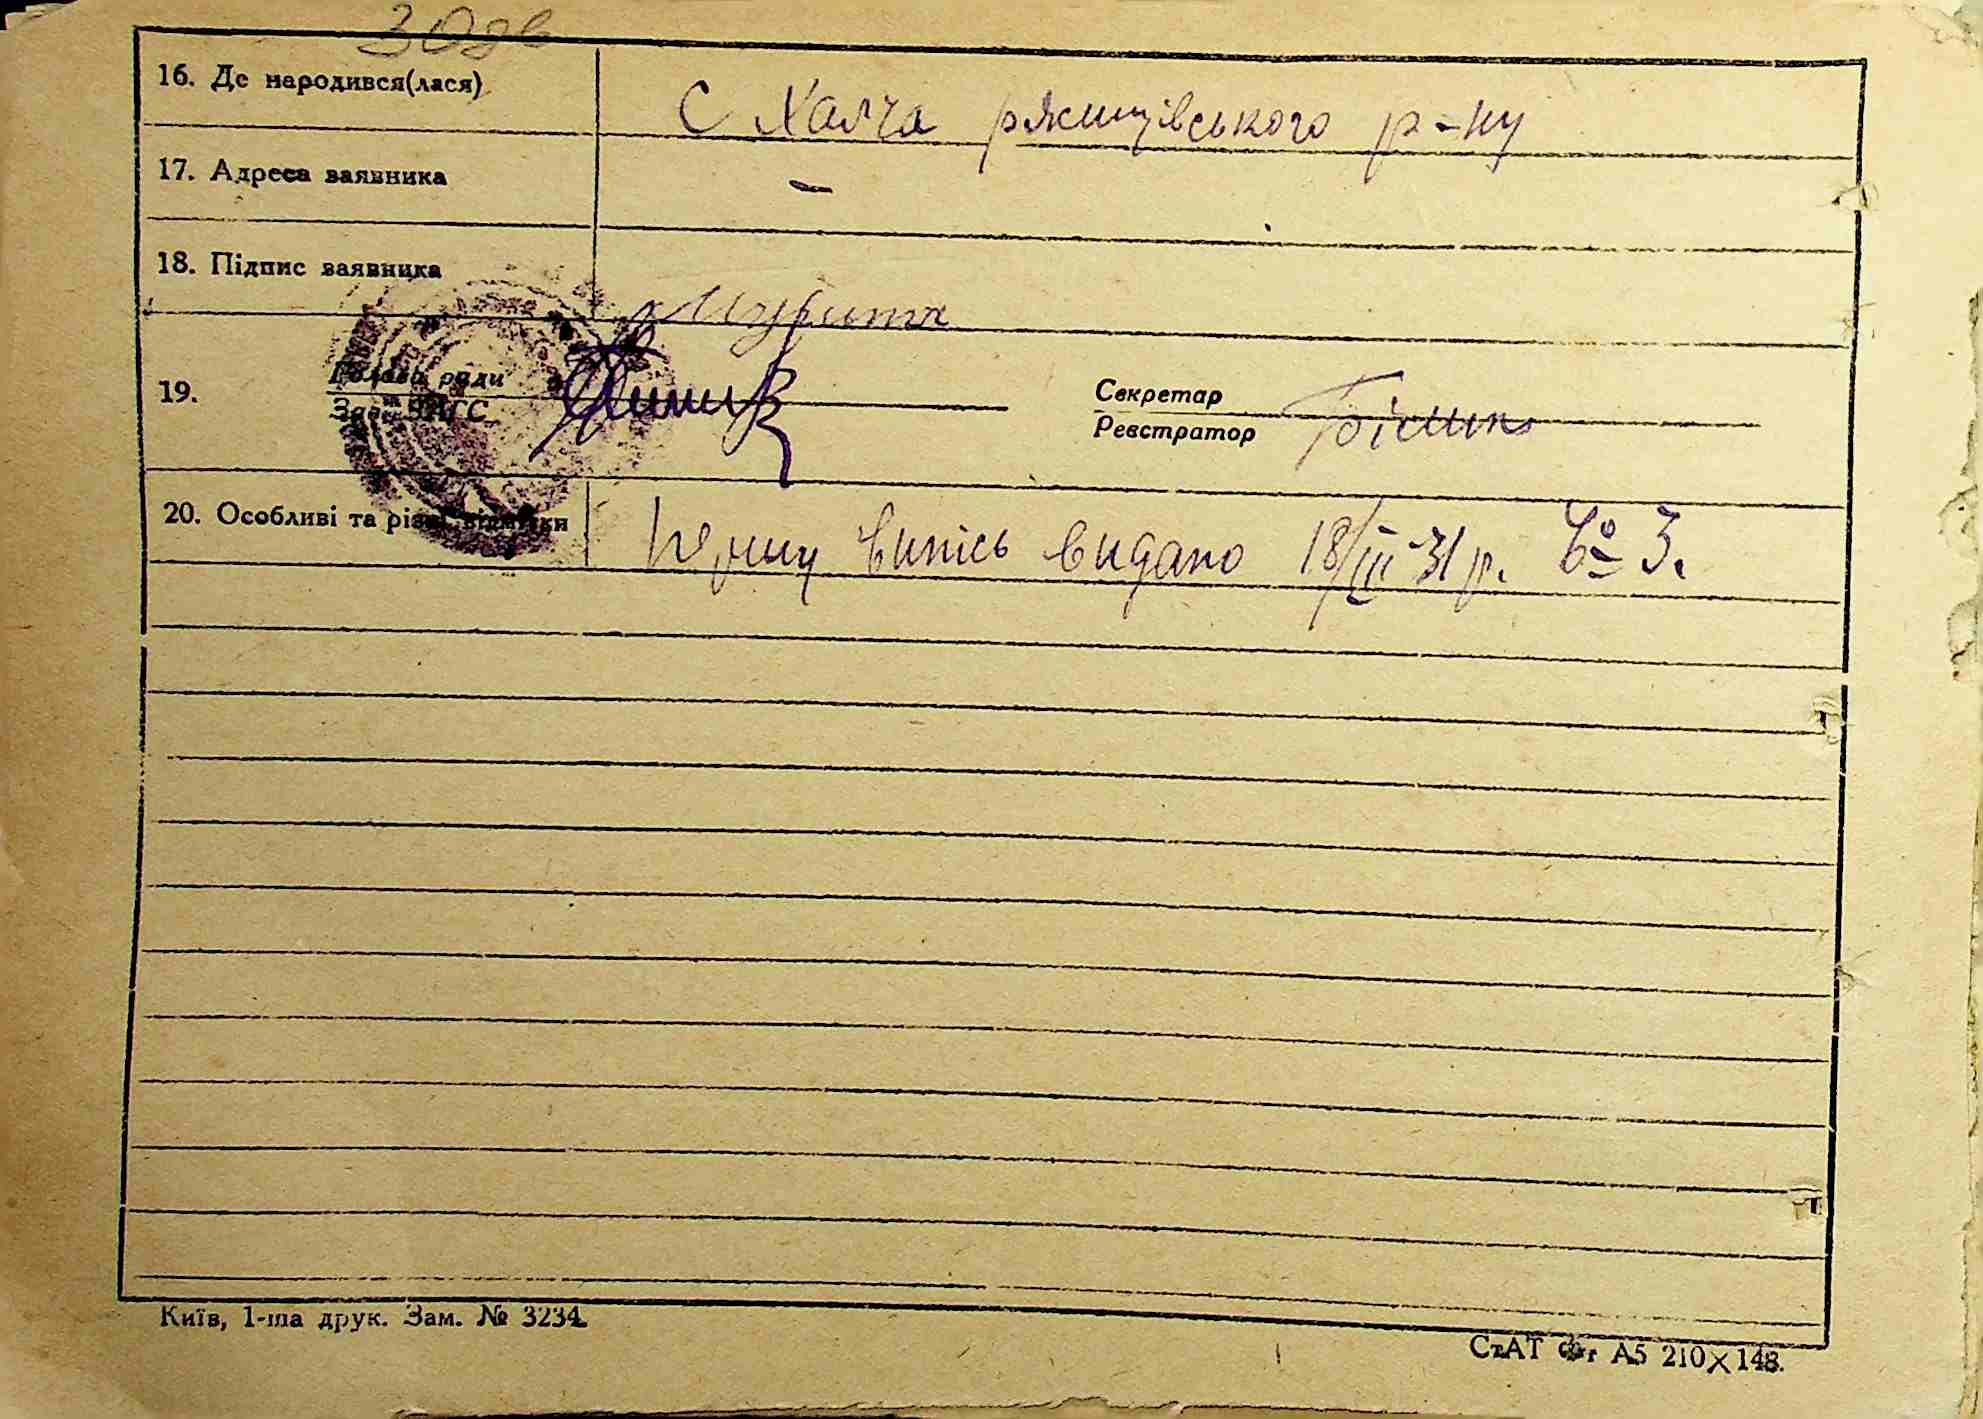 30зв
16. Де народився(лася)
С Халча ржищівського р-ну
17. Адреса заявника
–
18. Підпис заявника
19.
Голова ради
Зав. ЗАГС
Секретар
Реєстратор
Білик
20. Особливі та різні відмітки
Першу випісь видано 18/III-31 р. № 3.
Київ, 1-ша друк. Зам. № 3234.
СтАТ Ф-т А5 210×148.